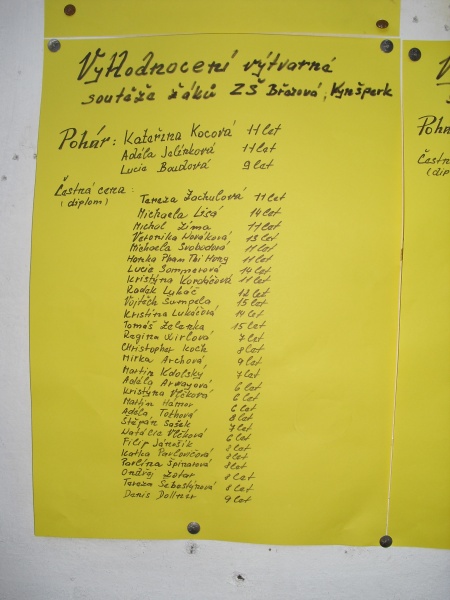 Vyhodnocení výtvarná
soutěže žáků ZŠ Březová, Kynšperk
Pohár: Kateřina Kocová 11 let
Adéla Jelínková 11 let
Lucie Boudová 9 let
Čestná cena:
(diplom)
Tereza Zachulová 11 let
Michaela Lisá 14 let
Michal Zíma 11 let
Veronika Nováková 13 let
Michaela Svobodová 11 let
Honka Pham Thi Hong 11 let
Lucie Sommerová 14 let
Kristýna Korabečová 11 let
Radek Lukáč 12 let
Vojtěch Sumpela 15 let
Kristina Lukáčová 14 let
Tomáš Zelenka 15 let
Regina Zirlová 7 let
Christopher Koch 8 let
Mirka Archová 9 let
Martin Kdolský 7 let
Adéla Arwayová 6 let
Kristyna Vlčková 6 let
Martin Hamor 6 let
Adéla Tothová 8 let
Štěpán Sašek 7 let
Natálie Vlčková 6 let
Filip Jánošík let
Katka Pavlovičová let
Pavlína Špinarová let
Ondřej Zotar let
Tereza Sebestýnová let
Denis Dollner 9 let
V
Pohá
Čestn
(dip